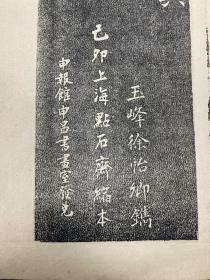 玉峰徐怡卿鐫
己卯上海點石齋縮本
申報館申昌書畫室發兌